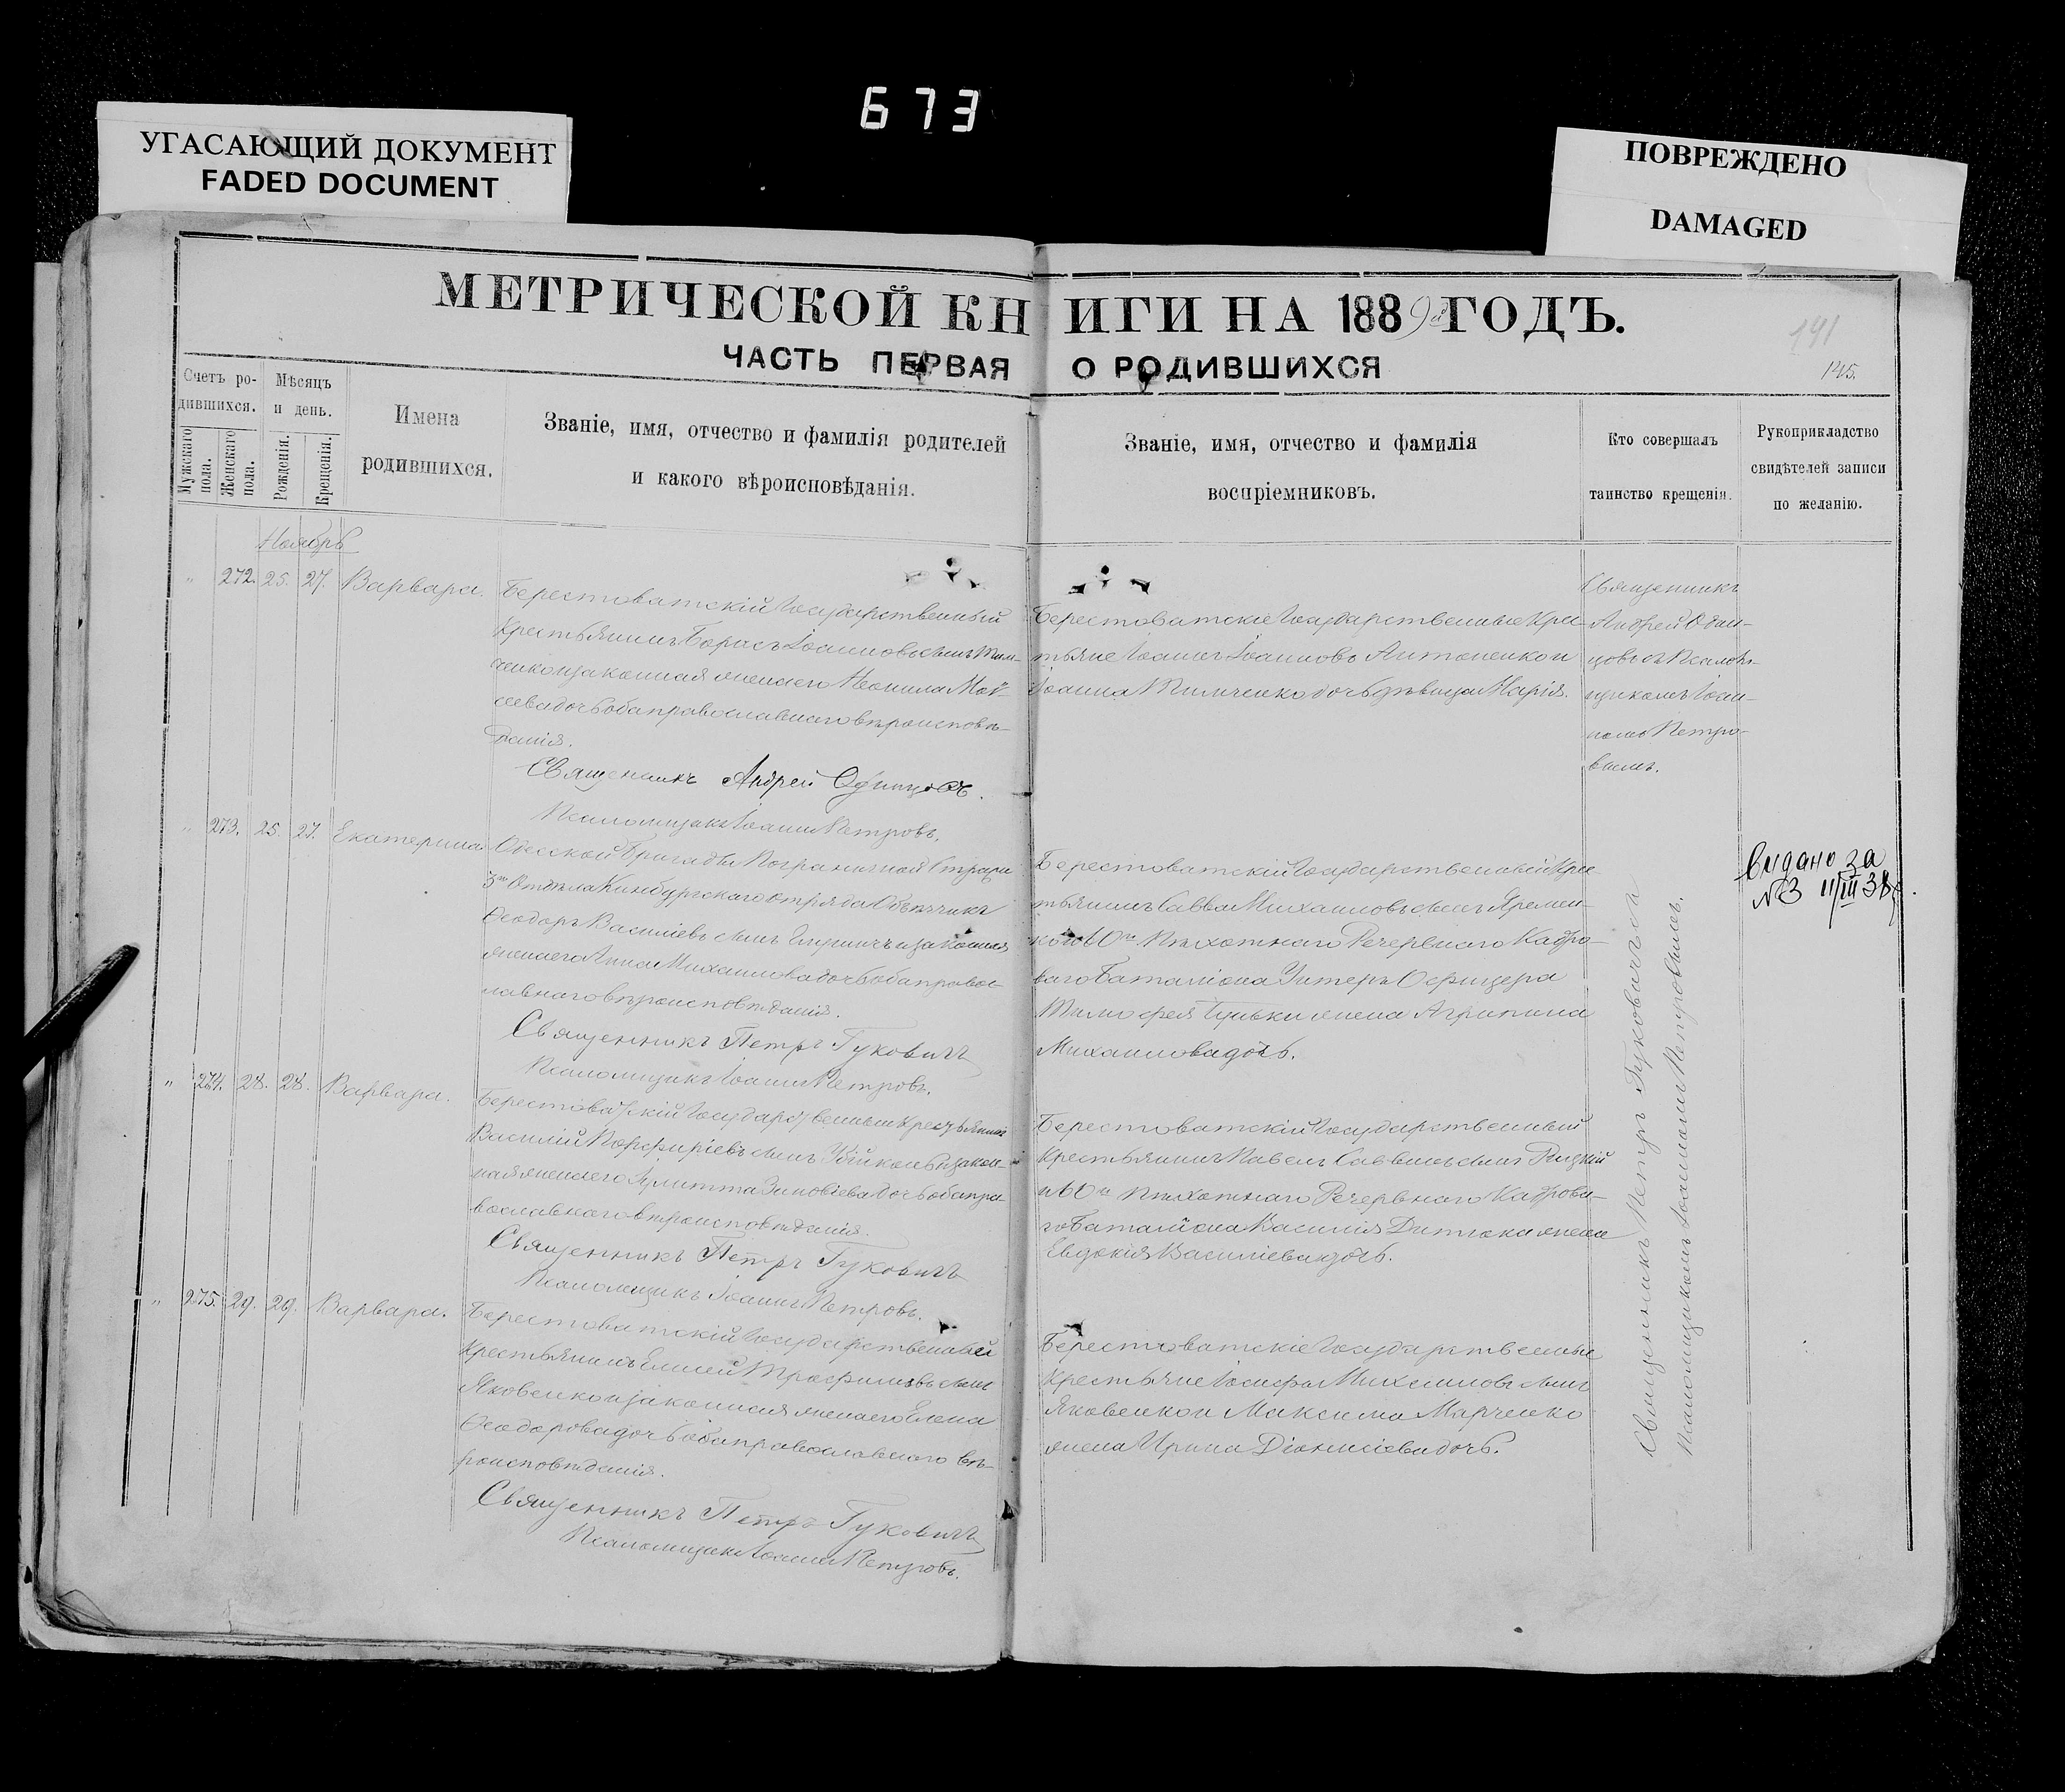 673
УГАСАЮЩИЙ ДОКУМЕНТ
FADED DOCUMENT
ПОВРЕЖДЕНО
DAMAGED
МЕТРИЧЕСКОЙ КНИГИ НА 1889й ГОДЪ.
ЧАСТЬ ПЕРВАЯ О РОДИВШИХСЯ
141
145.
Счетъ ро-
дившихся.
Мужскаго пола.
Женскаго пола.
Мѣсяцъ
и день.
Рожденія.
Крещенія.
Имена
родившихся.
Званіе, имя, отчество и фамилія родителей
и какого вѣроисповѣданія.
Званіе, имя, отчество и фамилія
воспріемниковъ.
Кто совершалъ
таинство крещенія.
Рукоприкладство
свидѣтелей записи
по желанію.
Ноябрь
" 272. 25. 27. Варвара.
Берестоватскій Государственный
Крестьянинъ Борисъ Іоанновъ сынъ Тим-
ченко и законная жена его Неонила Мой-
сеева дочь оба православнаго вѣроисповѣ-
данія.
Священникъ Андрей Одинцовъ.
Псаломщикъ Іоаннъ Петровъ.
Берестоватскіе Государственные Крес-
тьяне Іоаннъ Іоанновъ Антоненко и
Іоанна Тимченко дочь дѣвица Марія.
Священникъ
Андрей Один-
цовъ съ Псалом-
щикомъ Іоан-
номъ Петро-
вымъ.
" 273. 25. 27. Екатерина.
Одесской Бригады Пограничной Стражи
3го Отдѣла Кинбургскаго отряда Объѣзчикъ
Ѳеодоръ Василіевъ сынъ и законная
жена его Анна Михаилова дочь оба правос-
лавнаго вѣроисповѣданія.
Священникъ Петръ Гуковичъ
Псаломщикъ Іоаннъ Петровъ.
Берестоватскій Государственный Крес-
тьянинъ Савва Михаиловъ сынъ Яремен-
ко и Пѣхотнаго Резервнаго Кадро-
ваго Баталіона Унтеръ Офицера
Тимофея жена Агрипина
Михаилова дочь.
Видано за
№3 11/III 38 г.
" 274. 28. 28. Варвара.
Берестоватскій Государственный Крестьянинъ
Василій Порфиріевъ сынъ и закон-
ная жена его Іулитта Зиновіева дочь оба пра-
вославнаго вѣроисповѣданія.
Священникъ Петръ Гуковичъ
Псаломщикъ Іоаннъ Петровъ.
Берестоватскій Государственный
Крестьянинъ Павелъ Саввинъ сынъ
и Пѣхотнаго Резервнаго Кадрова-
го Баталіона Василія жена
Евдокія Василіева дочь.
" 275. 29. 29. Варвара.
Берестоватскій Государственный
Крестьянинъ Елисей Трофимовъ сынъ
Яковенко и законная жена его Елена
Ѳеодорова дочь оба православнаго вѣ-
роисповѣданія.
Священникъ Петръ Гуковичъ
Псаломщикъ Іоаннъ Петровъ.
Берестоватскіе Государственные
Крестьяне Іосифъ Михаиловъ сынъ
Яковенко и Максима Марченко
жена Ирина Діонисіева дочь.
Священникъ Петръ Гуковичъ съ
Псаломщикомъ Іоанномъ Петровымъ.